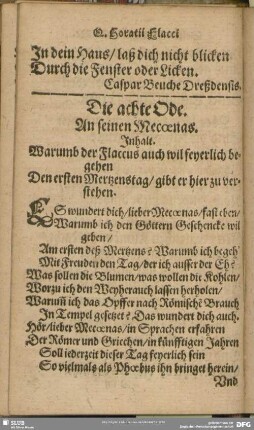 Q. Horatii Flacci
In dein Haus/ laß dich nicht blicken
Durch die Fenster oder Licken.
Caspar Beuche Dreßdensis.
Die achte Ode.
An seinen Mecœnas.
Inhalt.
Warumb der Flaccus auch wil feyerlich be-
gehen
Den ersten Mertzenstag/ gibt er hier zu ver-
stehen.
ES wundert dich/ lieber Mecœnas/ fast eben/
Warumb ich den Göttern Geschencke wil
geben/
Am ersten deß Mertzens? Warumb ich begeh
Mit Freuden den Tag/ der ich ausser der Eh?
Was sollen die Blumen/ was wollen die Kohlen/
Worzu ich den Weyherauch lassen herholen/
Warum̃ ich das Opffer nach Römischē Brauch
In Tempel gesetzet? Das wundert dich auch.
Hör/ lieber Mecœnas/ in Sprachen erfahren
Der Römer und Griechen/ in künfftigen Jahren
Soll iederzeit dieser Tag feyerlich sein
So vielmals als Phœbus ihn bringet herein/
Vnd
SLUB
DFG